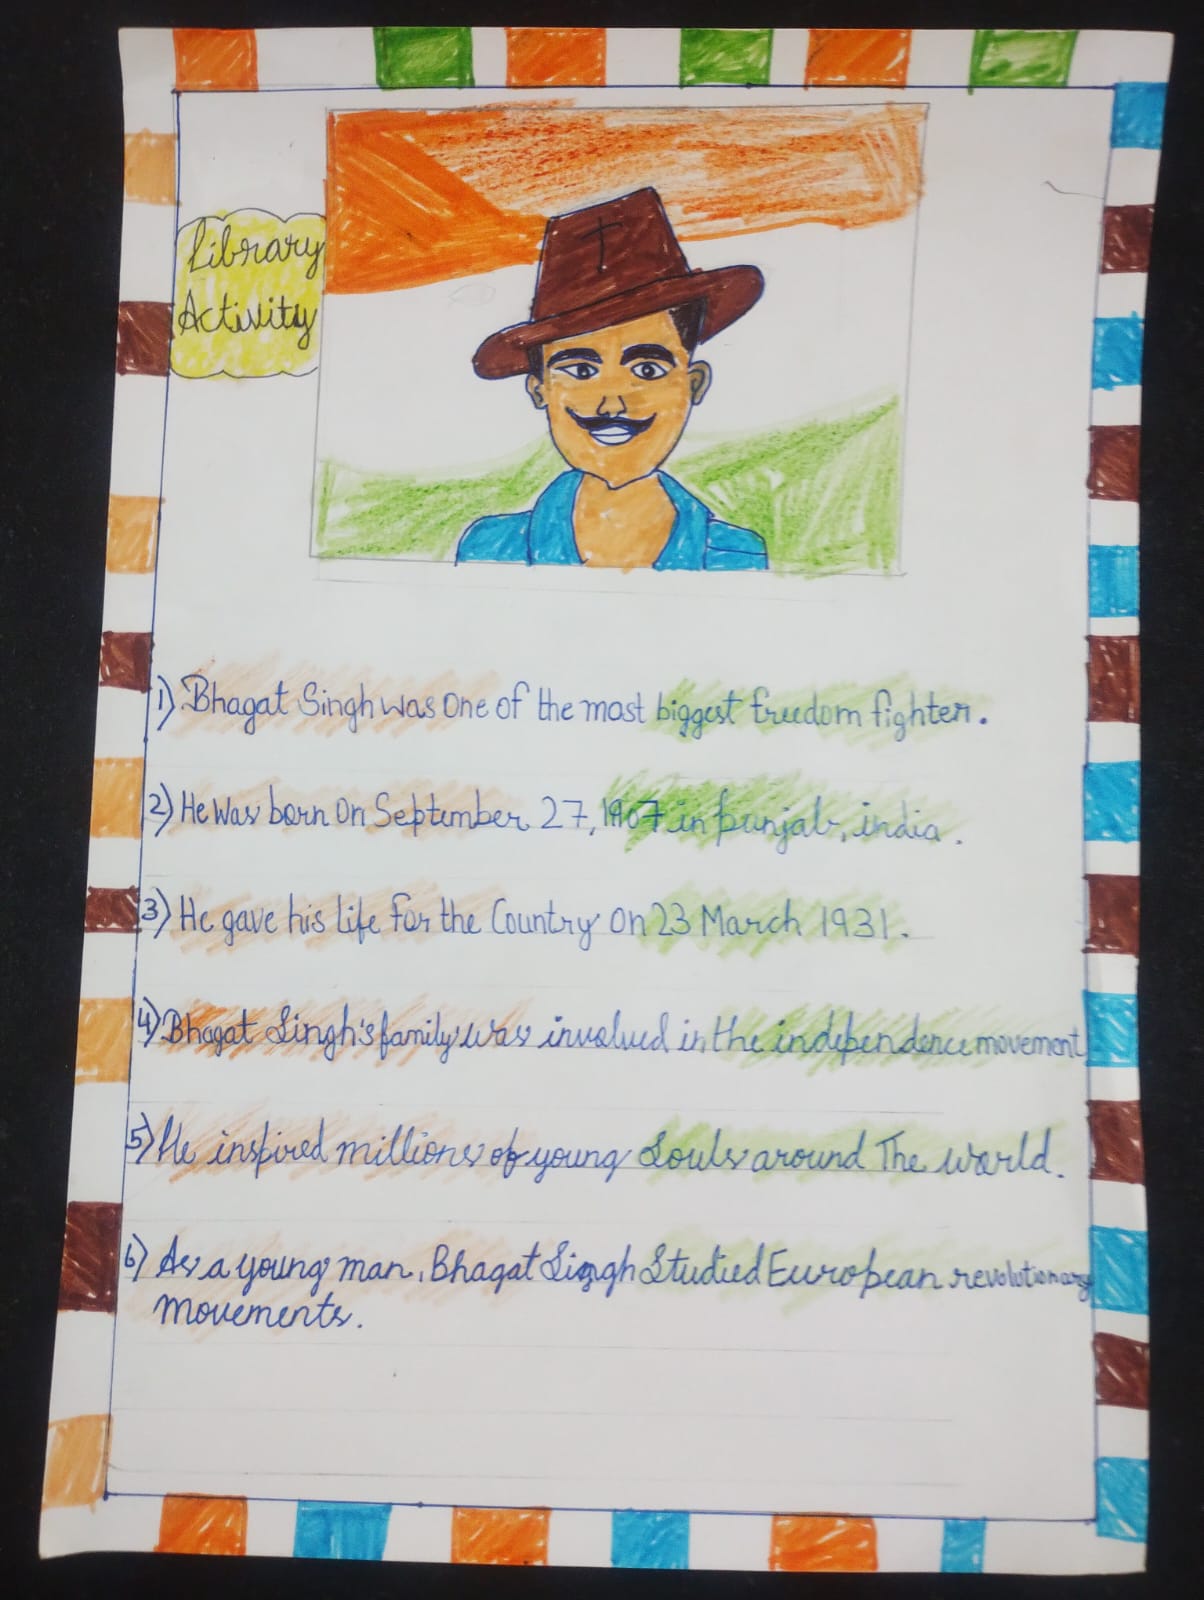 Library
Activity
1) Bhagat Singh was one of the most biggest freedom fighter.
2) He was born on September 27, 1907 in punjab, india.
3) He gave his life for the Country on 23 March 1931.
4) Bhagat Singh's family was involved in the independence movement
5) He inspired millions of young Souls around The world.
6) As a young man, Bhagat Singh Studied European revolutionary
Movements.